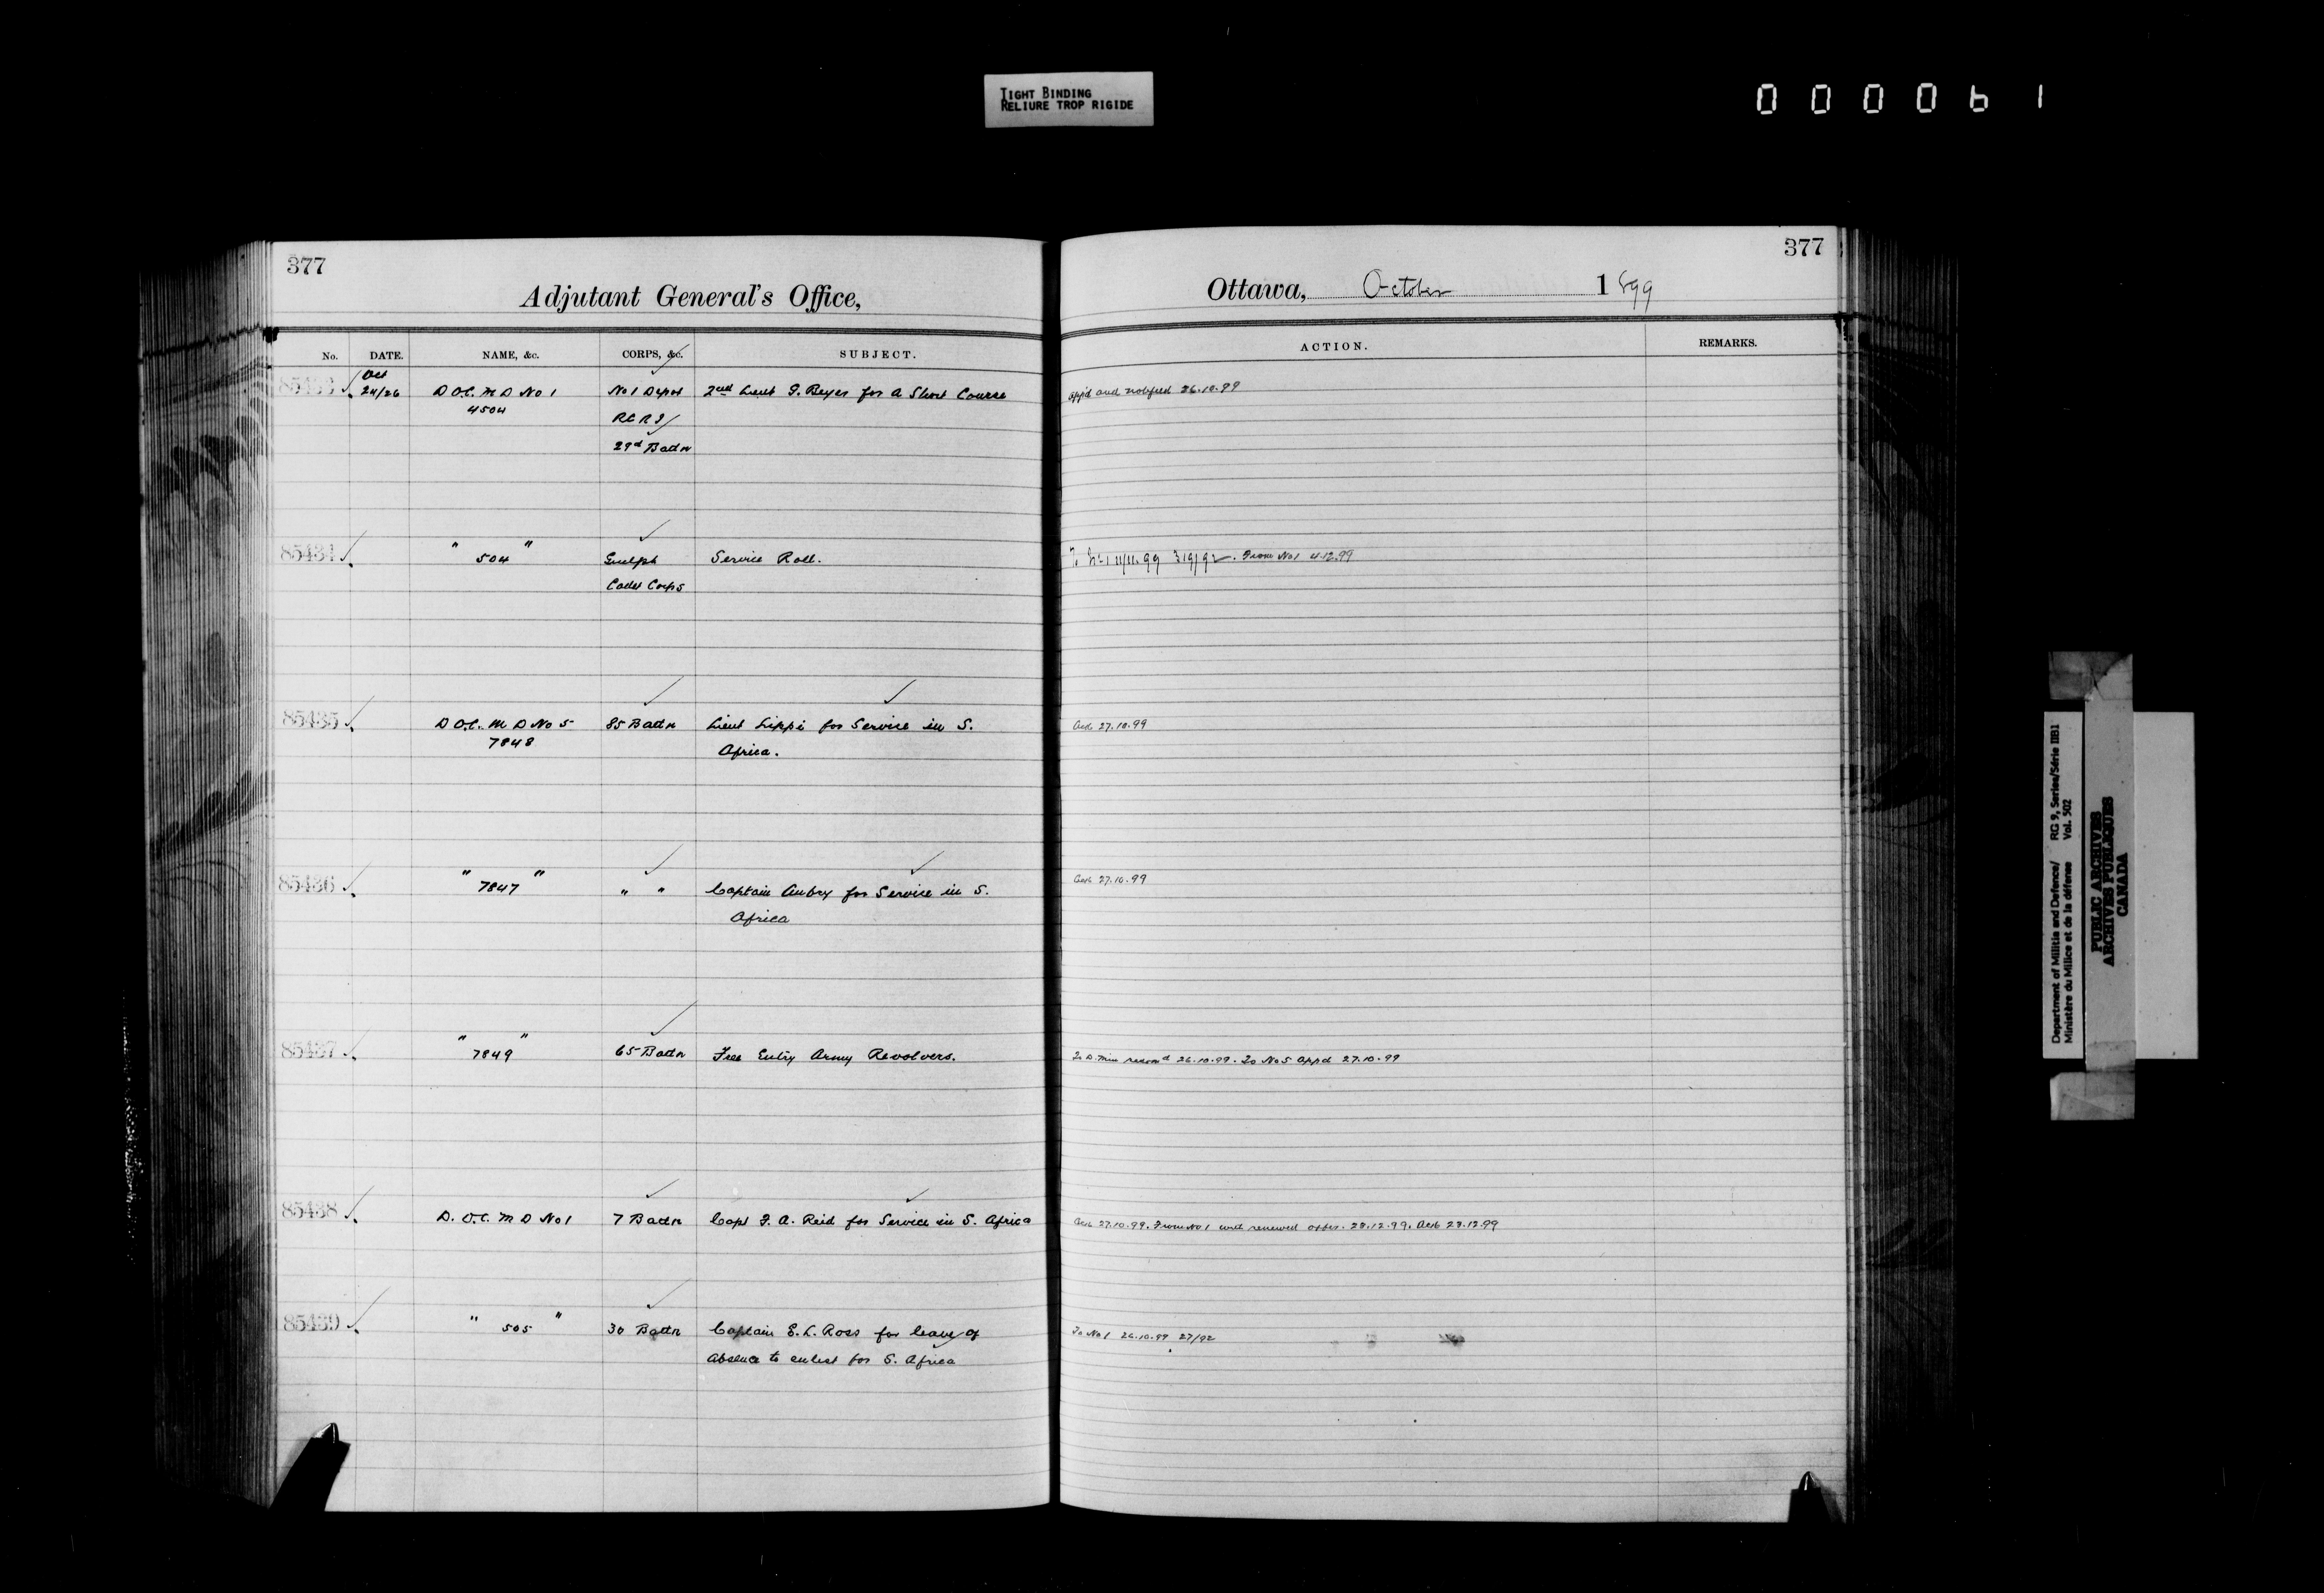 TIGHT BINDING
RELIURE TROP RIGIDE
000061
377
Adjutant General's Office,
No. DATE. NAME, &c. CORPS, &c. SUBJECT.
Oct
85433 24/26 D.O.C. M D No 1 No 1 Depot 2nd Lieut F. Beyer for a Short Course
4504
RCRI
29d Battn
85434 " 504 " Guelph Service Roll.
Cadet Corps
85435 D.O.C. M D No 5 85 Battn Lieut Lippi for Service in S.
7848 Africa.
85436 " 7847 " " " Captain Aubry for Service in S.
Africa
85437 " 7849 " 65 Battn Free Entry Army Revolvers.
85438 D. O.C. M D No 1 7 Battn Capt F. A. Reid for Service in S. Africa
85439 " 505 " 30 Battn Captain E. L. Ross for leave of
Absence to enlist for S. Africa
377
Ottawa, October 1899
ACTION. REMARKS.
app'd and notified 26.10.99
11/11.99 From No 1 4.12.99
Ack 27.10.99
Ack 27.10.99
To D. Min recomd 26.10.99. To No 5 appd 27.10.99
Ack 27.10.99. From No 1 with renewed offer. 28.12.99. Ack 28.12.99
To No 1 26.10.99 27/92
Department of Militia and Defence/ RG 9, Series/Série IIB1
Ministère du Milice et de la défense Vol. 502
PUBLIC ARCHIVES
ARCHIVES PUBLIQUES
CANADA